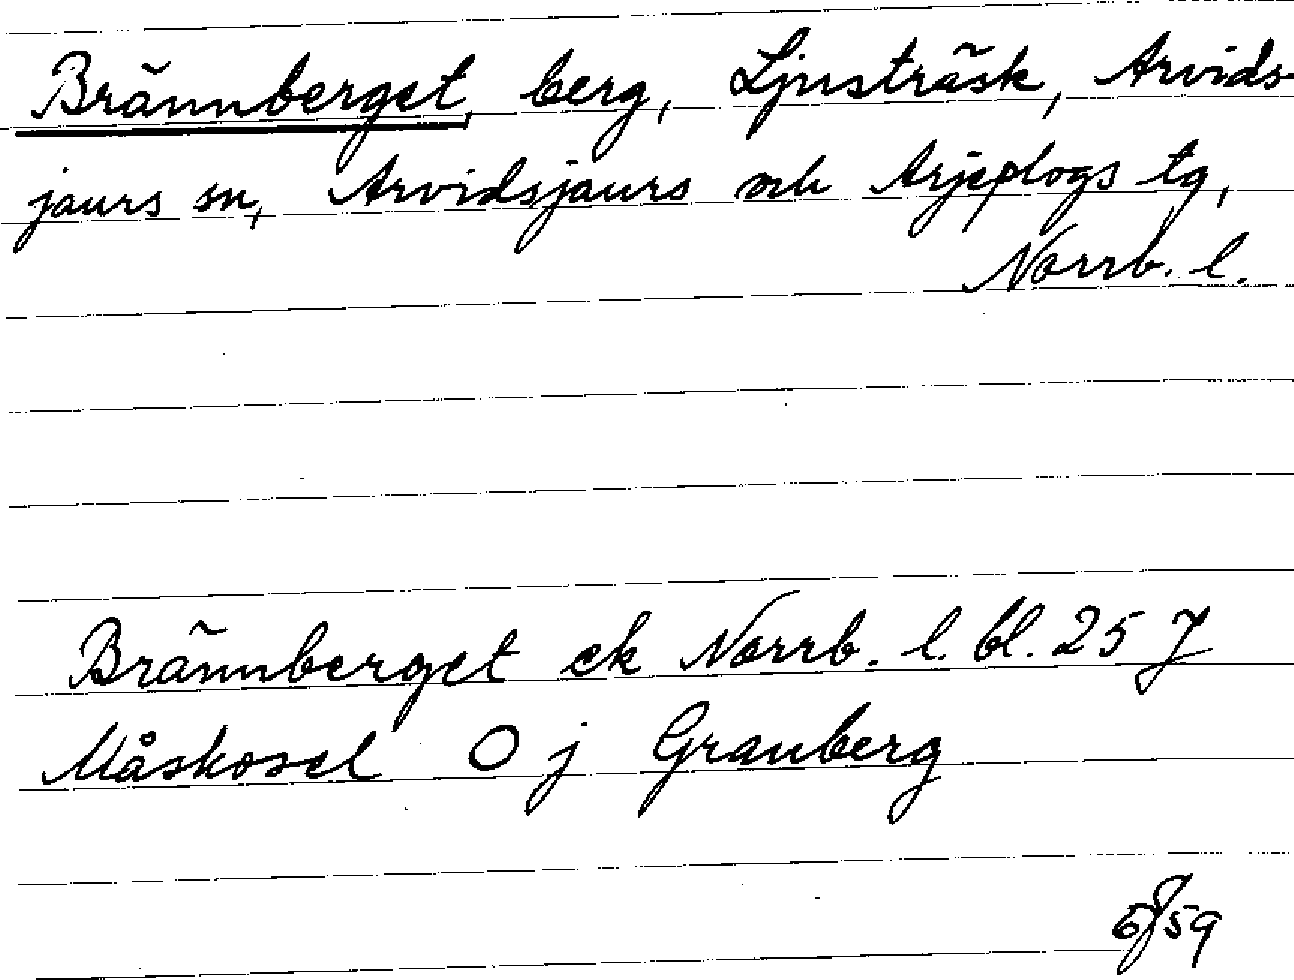 Brännberget, berg, Ljusträsk, Arvids-
jaurs sn, Arvidsjaurs och Arjeplogs tg,
Norrb. l.
Brännberget ek Norrb. l. bl. 25 J
Måskosel O j Granberg
59